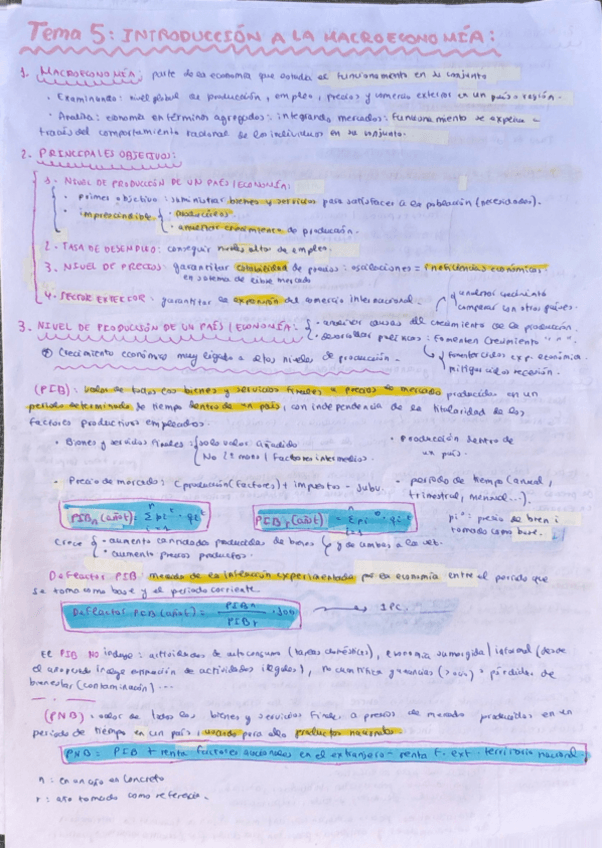 Tema 5: INTRODUCCIÓN A LA MACROECONOMÍA:
1. MACROECONOMÍA: parte de la economía que estudia el funcionamiento en su conjunto
· Examinando: nivel global de producción, empleo, precios y comercio exterior en un país o región.
· Analiza: economía en términos agregados: integrando mercados: funcionamiento se explica a
través del comportamiento racional de los individuos en su conjunto.
2. PRINCIPALES OBJETIVOS:
1. NIVEL DE PRODUCCIÓN DE UN PAÍS/ECONOMÍA:
· primer objetivo: suministrar bienes y servicios para satisfacer a la población (necesidades).
· imprescindible · producirlos.
· aumentar crecimiento de producción.
2. TASA DE DESEMPLEO: conseguir niveles altos de empleo.
3. NIVEL DE PRECIOS: garantizar estabilidad de precios: oscilaciones = ineficiencias económicas
en sistema de libre mercado
4. SECTOR EXTERIOR: garantizar la expansión del comercio internacional.
crecimiento
comparar con otros países.
3. NIVEL DE PRODUCCIÓN DE UN PAÍS/ECONOMÍA: · analizar causas del crecimiento de la producción.
· desarrollar políticas: fomenten crecimiento " " ".
Crecimiento económico muy ligado a altos niveles de producción.
fomentar ciclos exp. económica.
mitigar ciclos recesión.
(PIB): valor de todos los bienes y servicios finales a precios de mercado producidos en un
período determinado de tiempo dentro de un país, con independencia de la titularidad de los
factores productivos empleados.
· Bienes y servicios finales: solo valor añadido
No 2ª mano / Factores intermedios
· Producción dentro de
un país.
· Precio de mercado: (producción (factores) + impuestos - subv.
· período de tiempo (anual,
trimestral, mensual...).
PIBn (año t) = Σ pi^t · qi^t
PIBr (año t) = Σ pi° · qi^t
pi°: precio de bien i
tomado como base.
Crece · aumento cantidades producidas de bienes y/o ambos a la vez.
· aumento precios productos.
Deflactor PIB: medida de la inflación experimentada por la economía entre el período que
se toma como base y el período corriente.
Deflactor PIB (año t) = PIBn / PIBr · 100 → IPC.
El PIB NO incluye: actividades de autoconsumo (tareas domésticas), economía sumergida/informal (desde
el incluye estimación de actividades ilegales), no cuantifica ganancias (ocio) o pérdidas de
bienestar (contaminación)...
(PNB): valor de todos los bienes y servicios finales a precios de mercado producidos en un
período de tiempo en un país, usando para ello productos nacionales.
PNB = PIB + renta factores nacionales en el extranjero - renta f. ext. territorio nacional
n: en un año en concreto
r: año tomado como referencia.